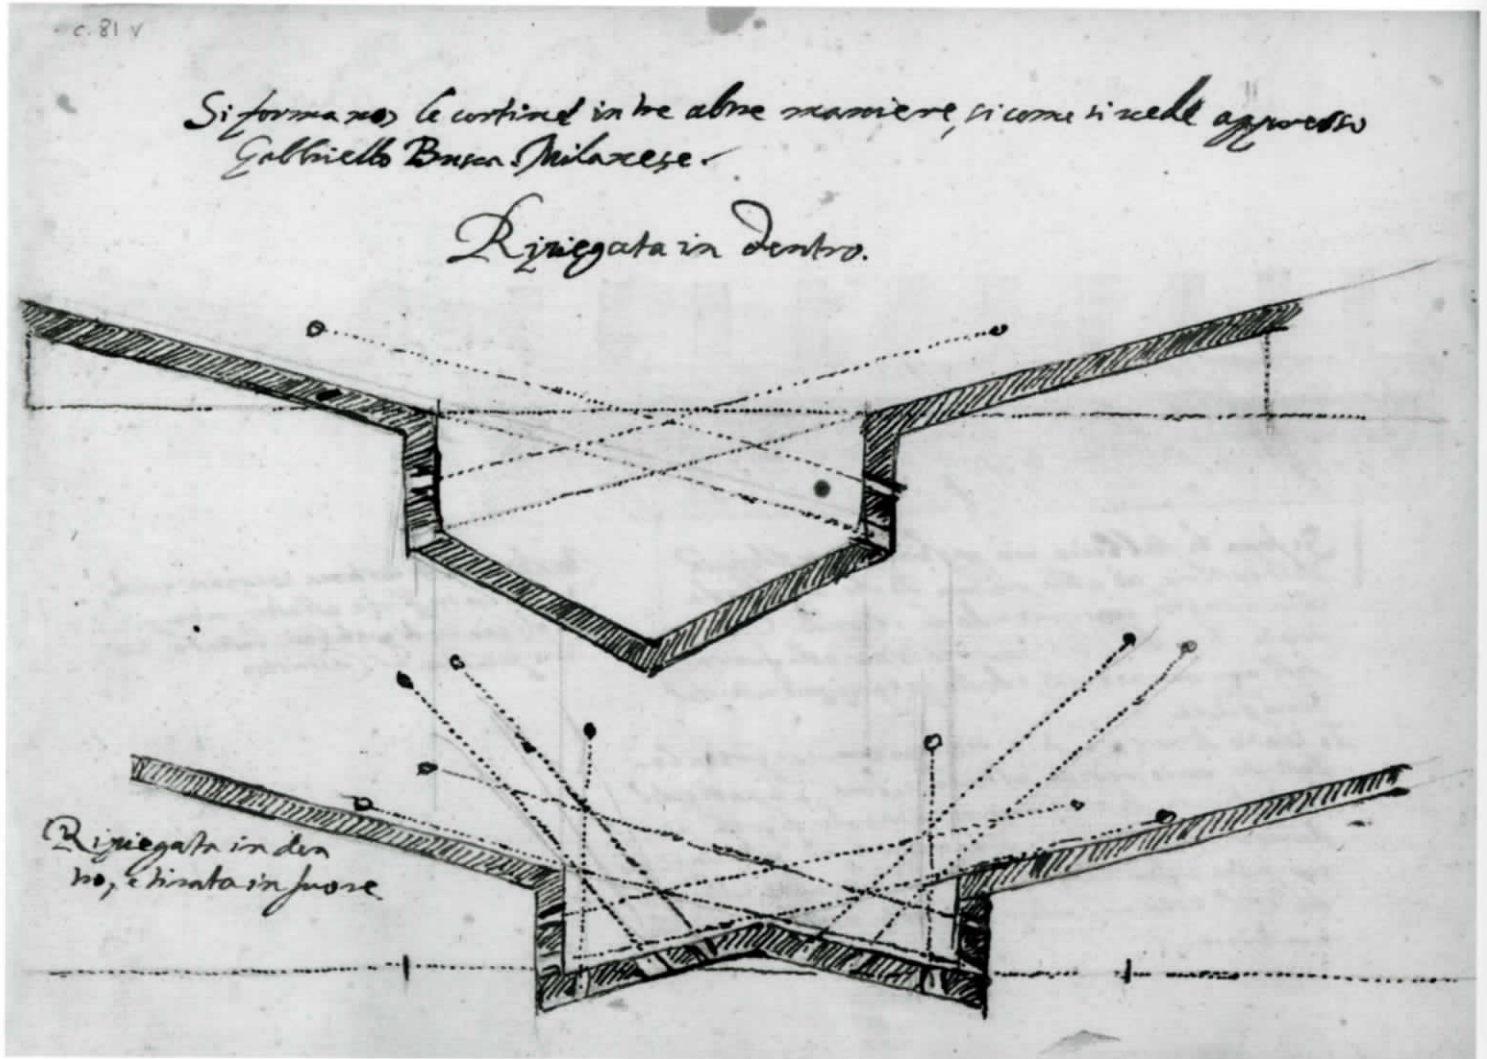 c. 81 v
Si formano le cortine in tre altre maniere, si come si vede appresso
Gabbriello Busca Milanese.
Ripiegata in dentro.
Ripiegata in den
tro, e tirata in fuore